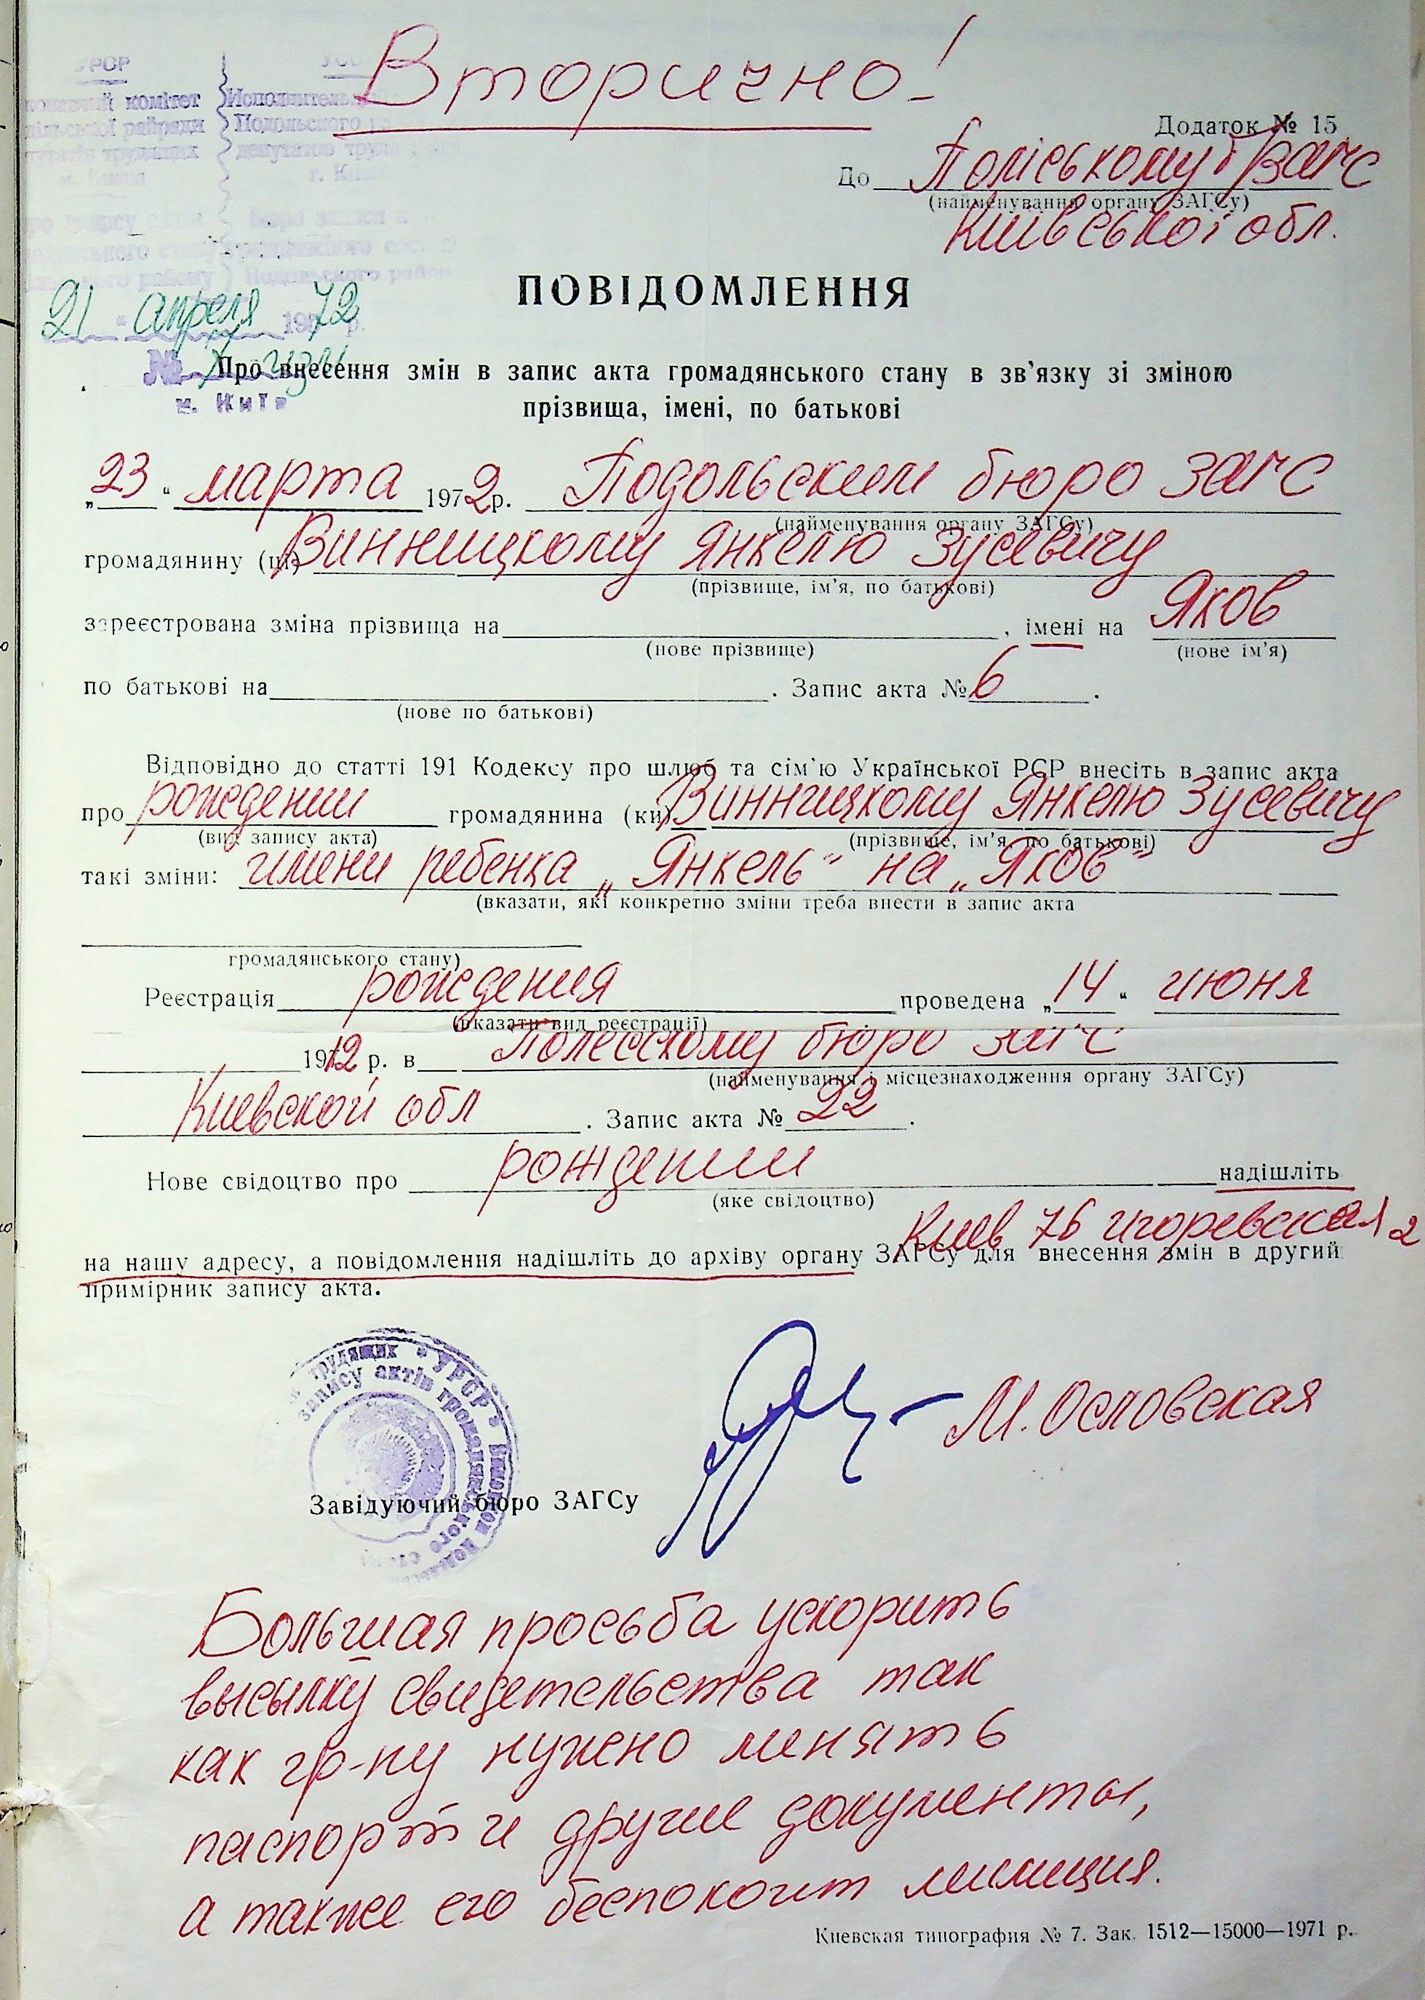 Вторично!
УРСР
комітет Исполнительный
райради Подольского
депутатів трудящих депутатов трудящихся
м. Києва г. Киева
Додаток № 15
До Поліському б/ЗАГС
(найменування органу ЗАГСу)
Київської обл.
21 " апреля 1972 р.
№
м. Київ
ПОВІДОМЛЕННЯ
Про внесення змін в запис акта громадянського стану в зв'язку зі зміною
прізвища, імені, по батькові
„23" марта 1972 р. Подольским бюро ЗАГС
(найменування органу ЗАГСу)
громадянину (ці) Винницкому Янкелю Зусевичу
(прізвище, ім'я, по батькові)
зареєстрована зміна прізвища на , імені на Яков
(нове прізвище) (нове ім'я)
по батькові на . Запис акта № 6 .
(нове по батькові)
Відповідно до статті 191 Кодексу про шлюб та сім'ю Української РСР внесіть в запис акта
про рождении громадянина (ки) Винницкому Янкелю Зусевичу
(вид запису акта) (прізвище, ім'я, по батькові)
такі зміни: имени ребенка „Янкель" на „Яков"
(вказати, які конкретно зміни треба внести в запис акта
громадянського стану)
Реєстрація рождения проведена „14" июня
(вказати вид реєстрації)
1912 р. в Полесскому бюро ЗАГС
(найменування і місцезнаходження органу ЗАГСу)
Киевской обл . Запис акта № 22 .
Нове свідоцтво про рождении надішліть
(яке свідоцтво)
Киев 76 Игоревская 2
на нашу адресу, а повідомлення надішліть до архіву органу ЗАГСу для внесення змін в другий
примірник запису акта.
трудящих * УРСР * Виконком
запису актів громадянського
М.Ословская
Завідуючий бюро ЗАГСу
Большая просьба ускорить
высылку свидетельства так
как гр-ну нужно менять
паспорт и другие документы,
а также его беспокоит милиция.
Киевская типография № 7. Зак. 1512—15000—1971 р.